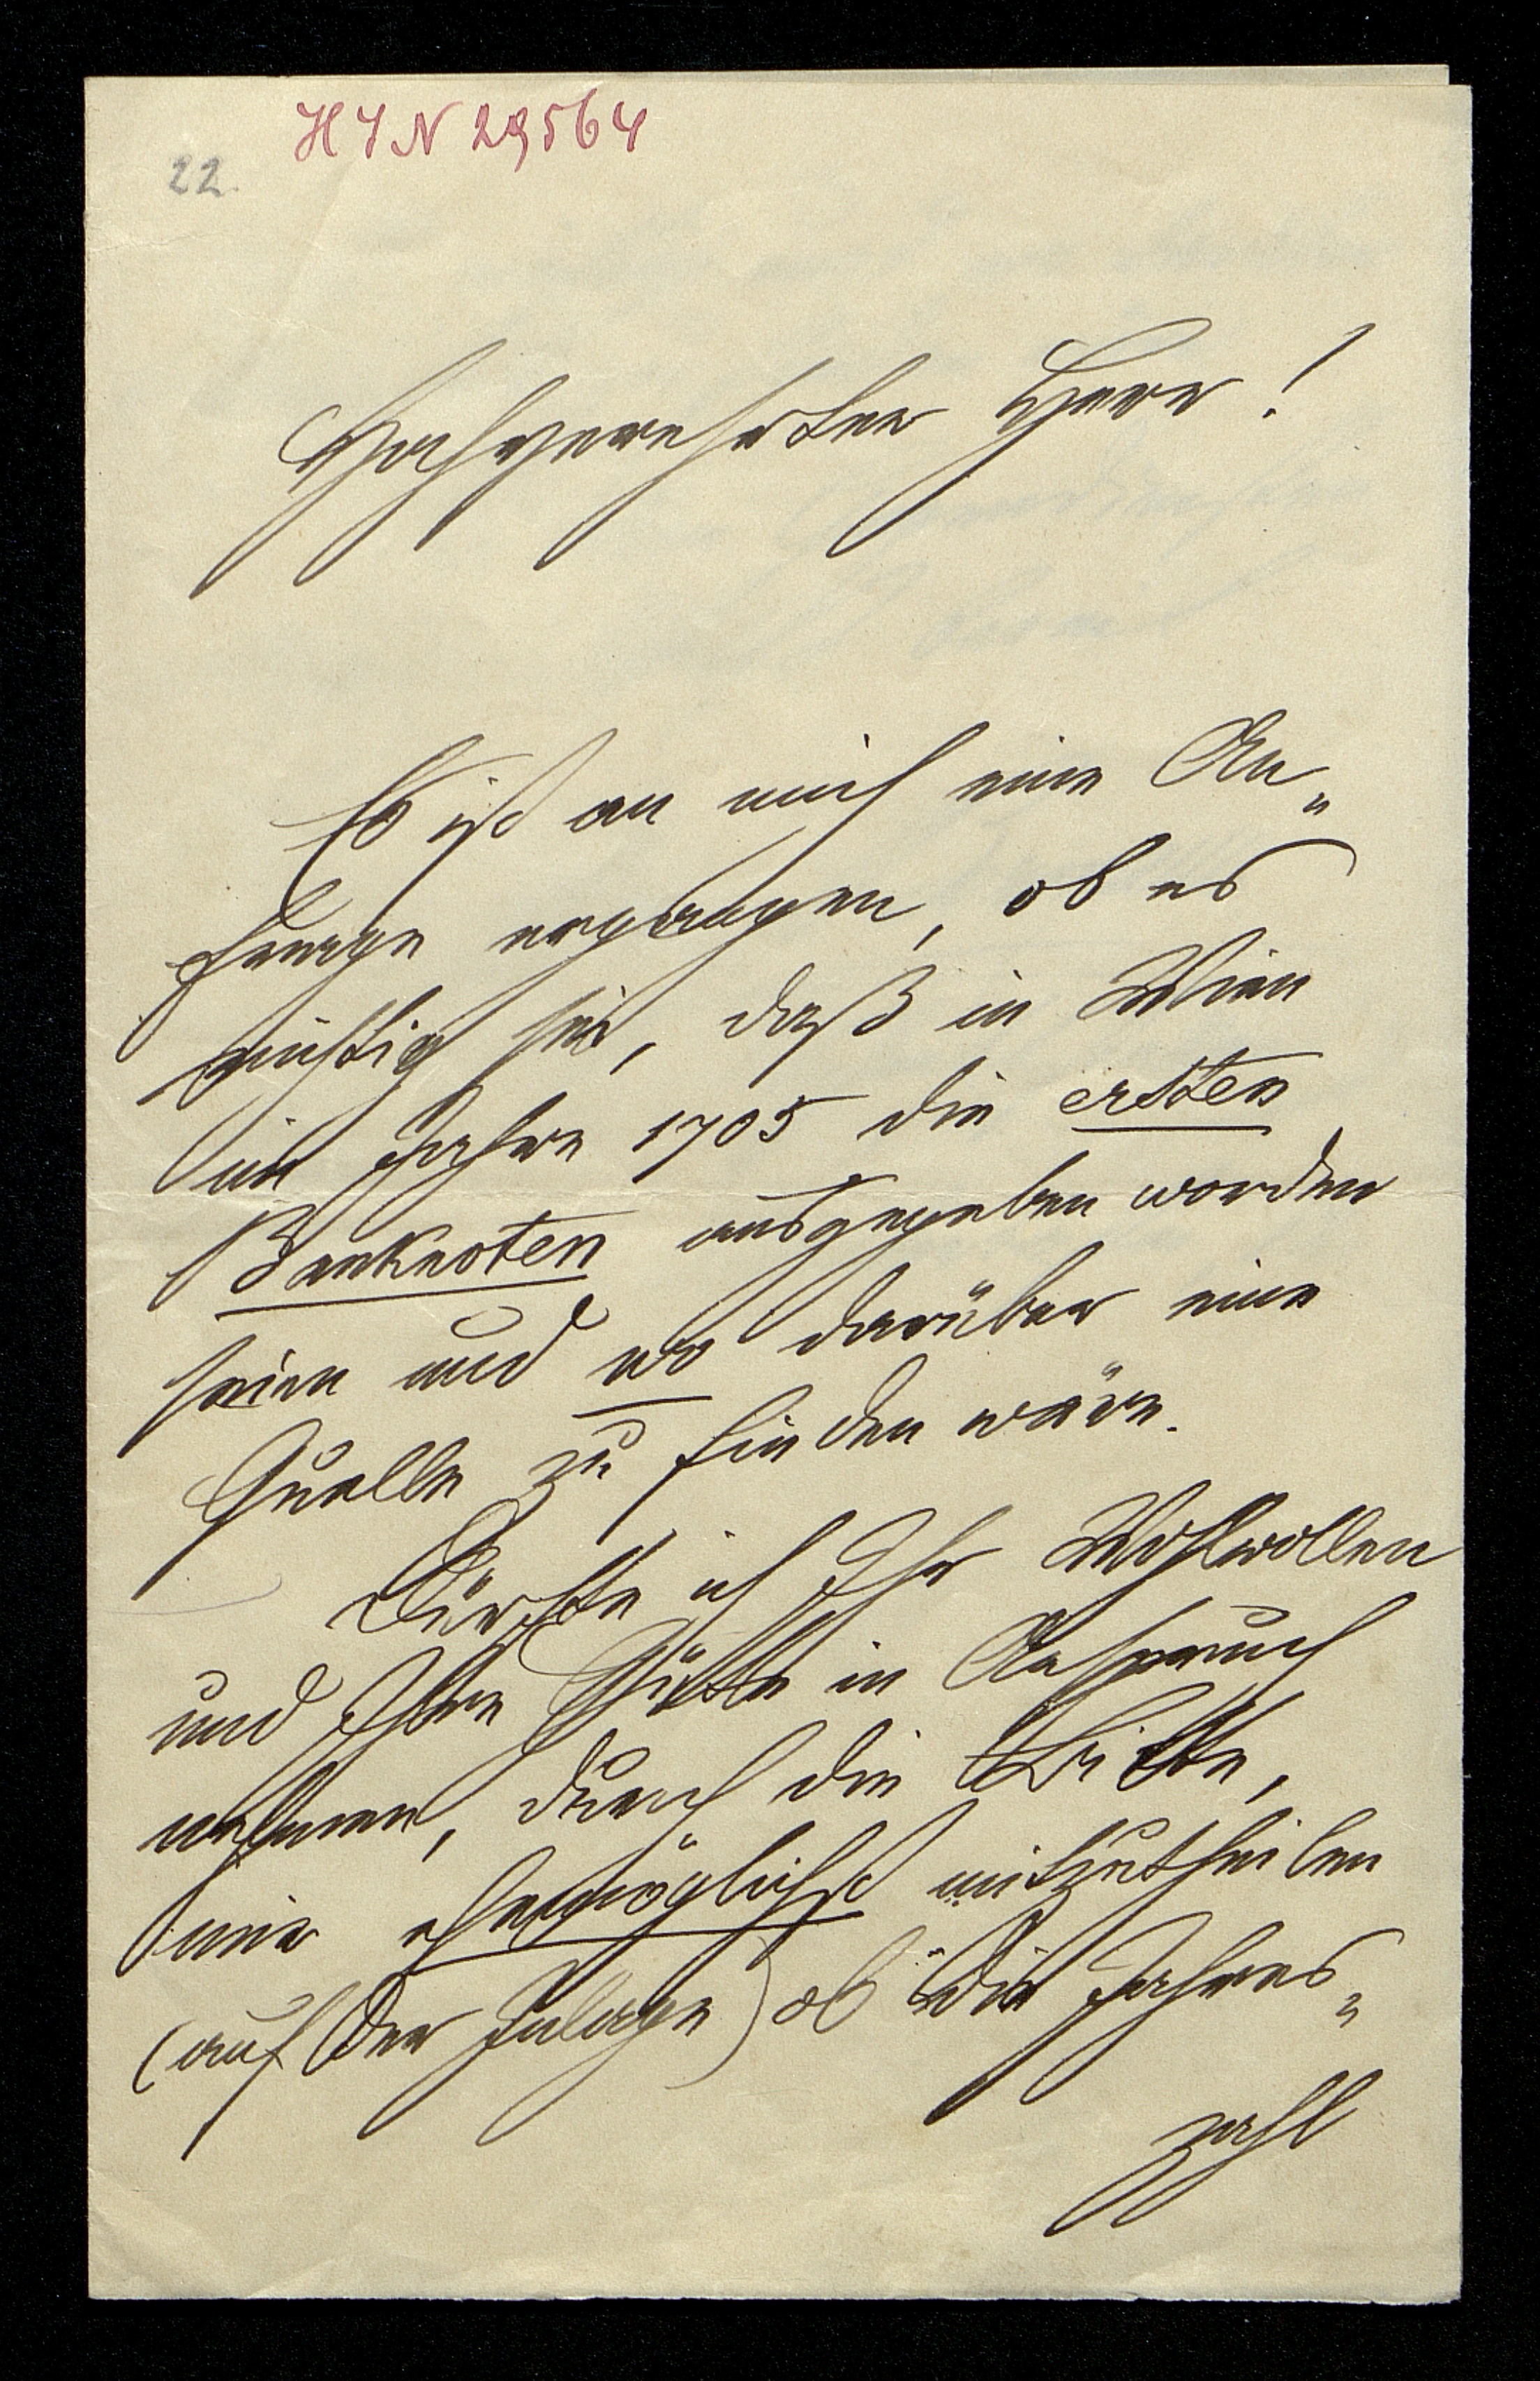 H I N 29564
22.
Hochverehrter Herr!
Es ist an mich eine An„
frage ergangen, ob es
richtig sei, daß in Wien
im Jahre 1705 die ersten
Banknoten ausgegeben worden
seien und wo darüber eine
Quelle zu finden wäre.
Dürfte ich Ihr Wohlwollen
und Ihre Güte in Anspruch
nehmen, durch die Bitte,
mir ehemöglichst mitzutheilen
(auf der Inlage) ob die Jahres„
zahl